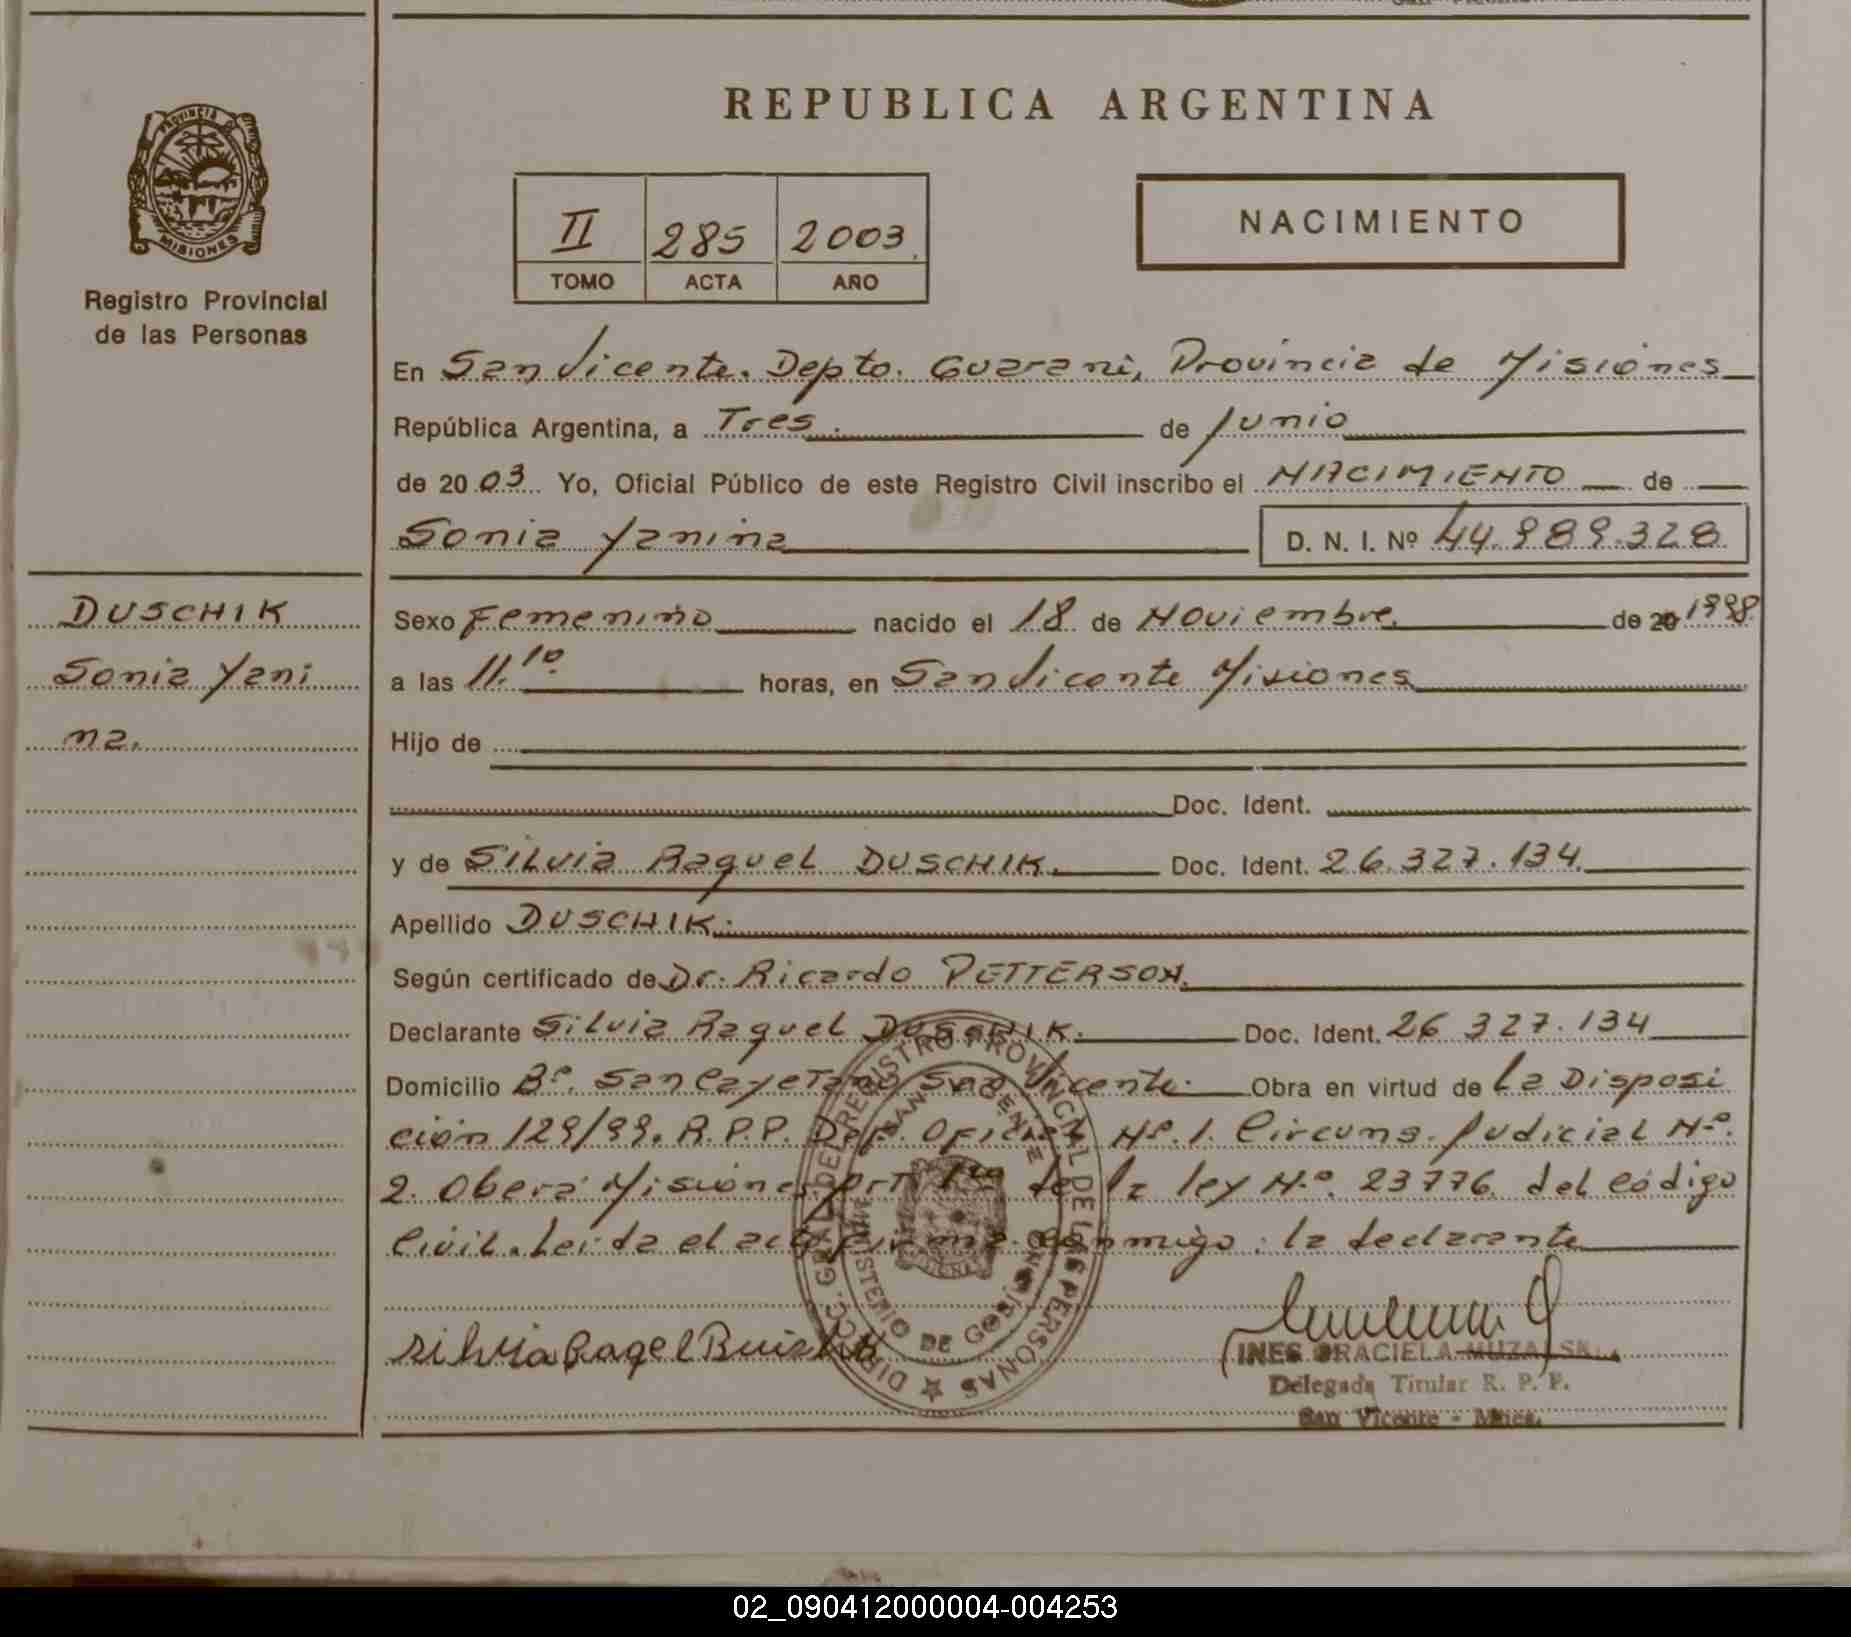 REPUBLICA ARGENTINA
PROVINCIA DE
MISIONES
Registro Provincial
de las Personas
II 285 2003
TOMO ACTA AÑO
NACIMIENTO
En San Vicente. Depto. Guarani, Provincia de Misiones
República Argentina, a Tres. de Junio
de 2003 Yo, Oficial Público de este Registro Civil inscribo el NACIMIENTO de
Sonia Yanina D. N. I. Nº 44.989.328
DUSCHIK
Sonia Yani
na.
Sexo Femenino nacido el 18 de Noviembre de 20 1998
a las 11.10 horas, en San Vicente Misiones
Hijo de
Doc. Ident.
y de Silvia Raquel DUSCHIK. Doc. Ident. 26.327.134
Apellido DUSCHIK.
Según certificado de Dr. Ricardo PETTERSON.
Declarante Silvia Raquel DUSCHIK. Doc. Ident. 26 327.134
Domicilio Bº. San Cayetano San Vicente. Obra en virtud de La Disposi
ción 129/99. R.P.P. Def. Oficial Nº.1. Circuns. Judicial Nº.
2. Oberá Misiones de la ley Nº. 23776 del Código
Civil. Leida el acta firma conmigo: la declarante
DIRECC. GRAL. DEL REGISTRO PROVINCIAL DE LAS PERSONAS
SAN VICENTE
MINISTERIO DE GOBIERNO
INES GRACIELA MUZALSKI
Delegada Titular R. P. P.
San Vicente - Mnes.
02_090412000004-004253